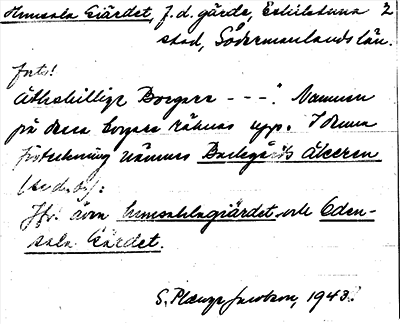 Hunsala Giärdet, f.d. gärde, Eskilstuna 2
stad, Södermanlands län.
forts!
Åthskillige Borgare - - -". Namnen
på dessa borgare räknas upp. I denna
förteckning nämnes Backegårds Åkeren
(se d.o.).
Jfr även hunsahlagiärdet och Oden-
sala Giärdet.
S. Plænge Jacobson, 1943.